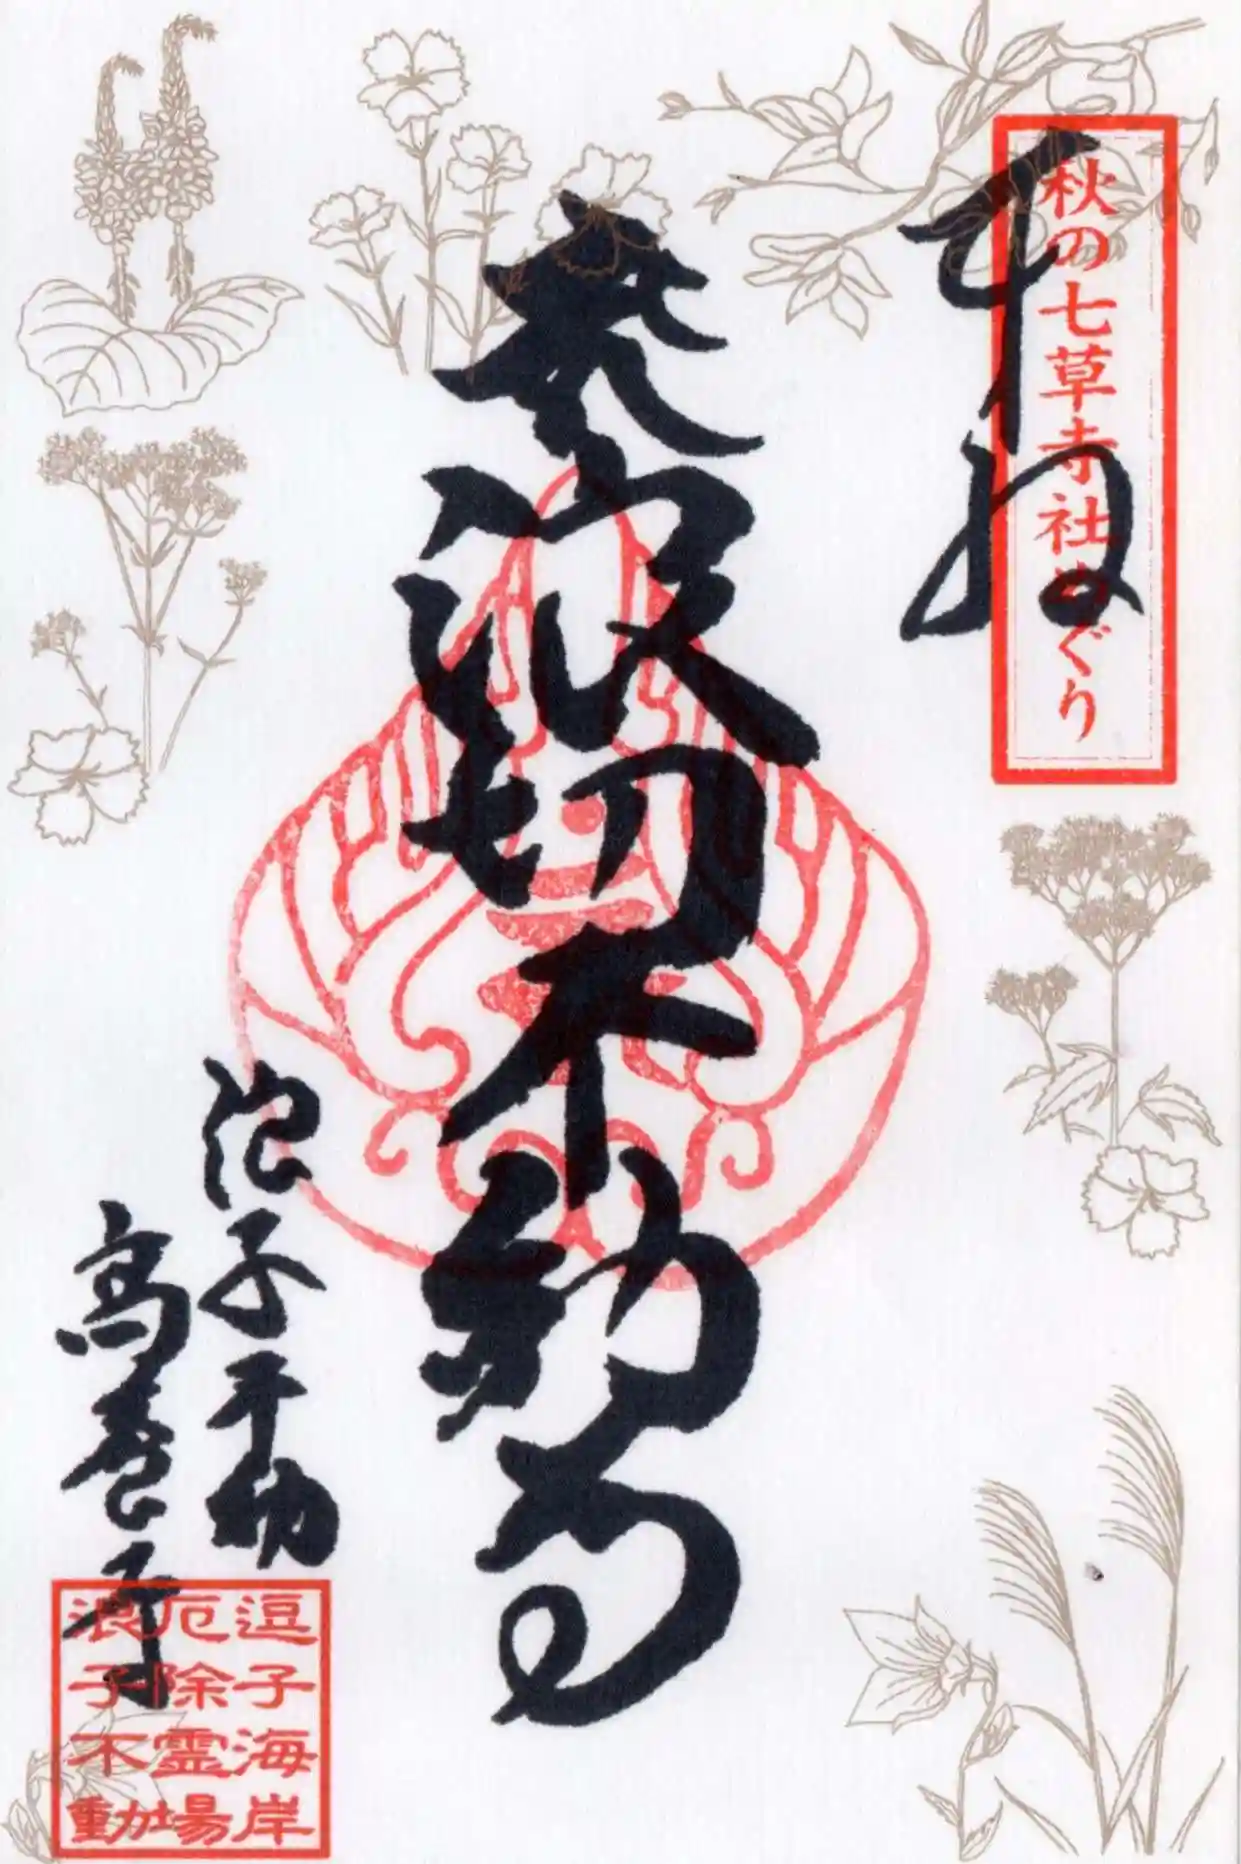 奉拝
秋の七草寺社めぐり
本尊
波切不動尊
浪子不動
高養寺
逗子海岸
厄除霊場
浪子不動